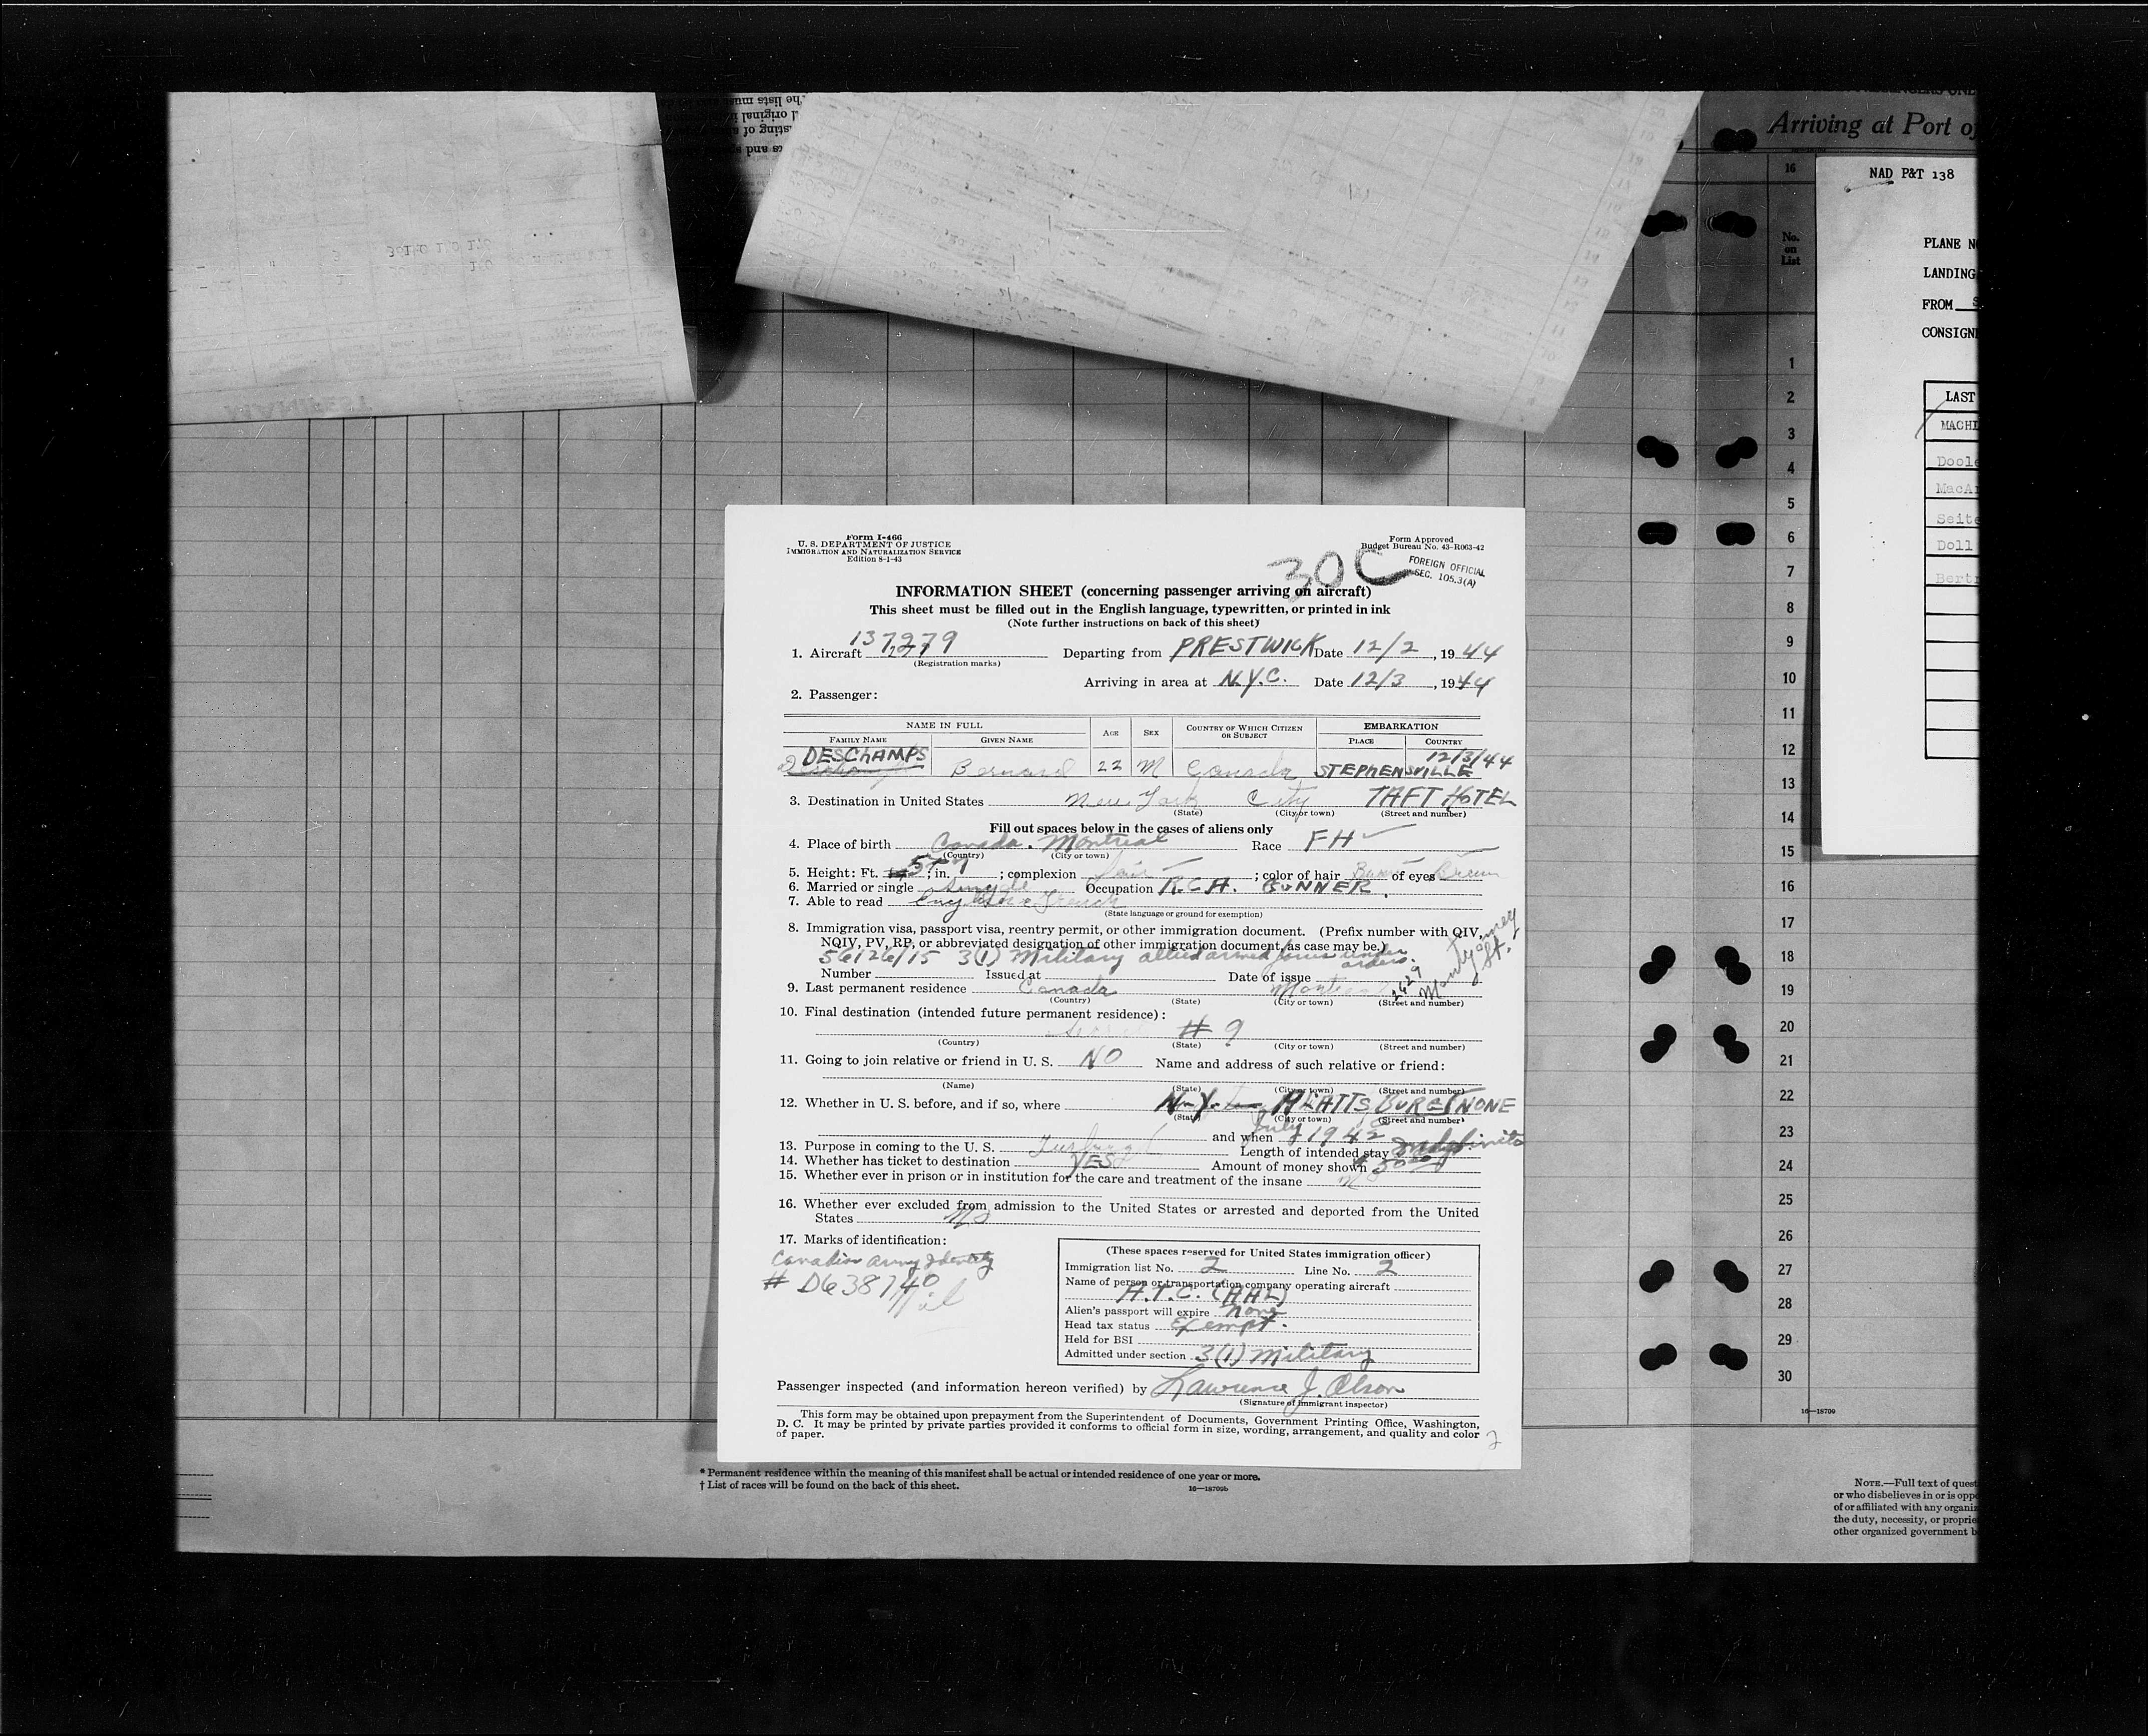 Arriving at Port of
16
NAD P&T 138
No.
on
List
PLANE
LANDING
FROM
CONSIGN
LAST
MACHI
Doole
MacAr
Seite
Doll
Bertr
1
2
3
4
5
6
7
8
9
10
11
12
13
14
15
16
17
18
19
20
21
22
23
24
25
26
27
28
29
30
16—18709
Form I-466
U. S. DEPARTMENT OF JUSTICE
IMMIGRATION AND NATURALIZATION SERVICE
Edition 8-1-43
Form Approved
Budget Bureau No. 43-R063-42
30C
FOREIGN OFFICIAL
SEC. 105.3(A)
INFORMATION SHEET (concerning passenger arriving on aircraft)
This sheet must be filled out in the English language, typewritten, or printed in ink
(Note further instructions on back of this sheet)
1. Aircraft 137279 Departing from PRESTWICK Date 12/2, 1944
(Registration marks)
Arriving in area at N.Y.C. Date 12/3, 1944
2. Passenger:
NAME IN FULL AGE SEX COUNTRY OF WHICH CITIZEN OR SUBJECT EMBARKATION
FAMILY NAME GIVEN NAME PLACE COUNTRY
DESCHAMPS Bernard 22 M Canada STEPHENSVILLE 12/3/44
3. Destination in United States New York City TAFT HOTEL
(State) (City or town) (Street and number)
Fill out spaces below in the cases of aliens only
4. Place of birth Canada. Montreal Race FH
(Country) (City or town)
5. Height: Ft. 5; in. 7; complexion fair; color of hair Brown of eyes Brown
6. Married or single Single Occupation R.C.A. GUNNER.
7. Able to read English & French
(State language or ground for exemption)
8. Immigration visa, passport visa, reentry permit, or other immigration document. (Prefix number with QIV,
NQIV, PV, RP, or abbreviated designation of other immigration document, as case may be.)
56126/15 3(1) Military allied armed forces under orders.
Number Issued at Date of issue
9. Last permanent residence Canada 2629 St.
(Country) (State) (City or town) (Street and number)
10. Final destination (intended future permanent residence):
# 9
(Country) (State) (City or town) (Street and number)
11. Going to join relative or friend in U. S. NO Name and address of such relative or friend:
(Name) (State) (City or town) (Street and number)
12. Whether in U. S. before, and if so, where N.Y. PLATTSBURG NONE
(State) (City or town) (Street and number)
and when July 1942
13. Purpose in coming to the U. S. Length of intended stay indefinite
14. Whether has ticket to destination YES Amount of money shown
15. Whether ever in prison or in institution for the care and treatment of the insane No
16. Whether ever excluded from admission to the United States or arrested and deported from the United
States No
17. Marks of identification:
Canadian Army Identity
# D638740
Nil
(These spaces reserved for United States immigration officer)
Immigration list No. 2 Line No. 2
Name of person or transportation company operating aircraft
A.T.C. (AAL)
Alien's passport will expire None
Head tax status Exempt.
Held for BSI
Admitted under section 3(1) Military
Passenger inspected (and information hereon verified) by Lawrence J. Olson
(Signature of immigrant inspector)
This form may be obtained upon prepayment from the Superintendent of Documents, Government Printing Office, Washington,
D. C. It may be printed by private parties provided it conforms to official form in size, wording, arrangement, and quality and color
of paper.
2
* Permanent residence within the meaning of this manifest shall be actual or intended residence of one year or more.
† List of races will be found on the back of this sheet.
16—18709b
NOTE.—Full text of quest
or who disbelieves in or is oppo
of or affiliated with any organiz
the duty, necessity, or proprie
other organized government b